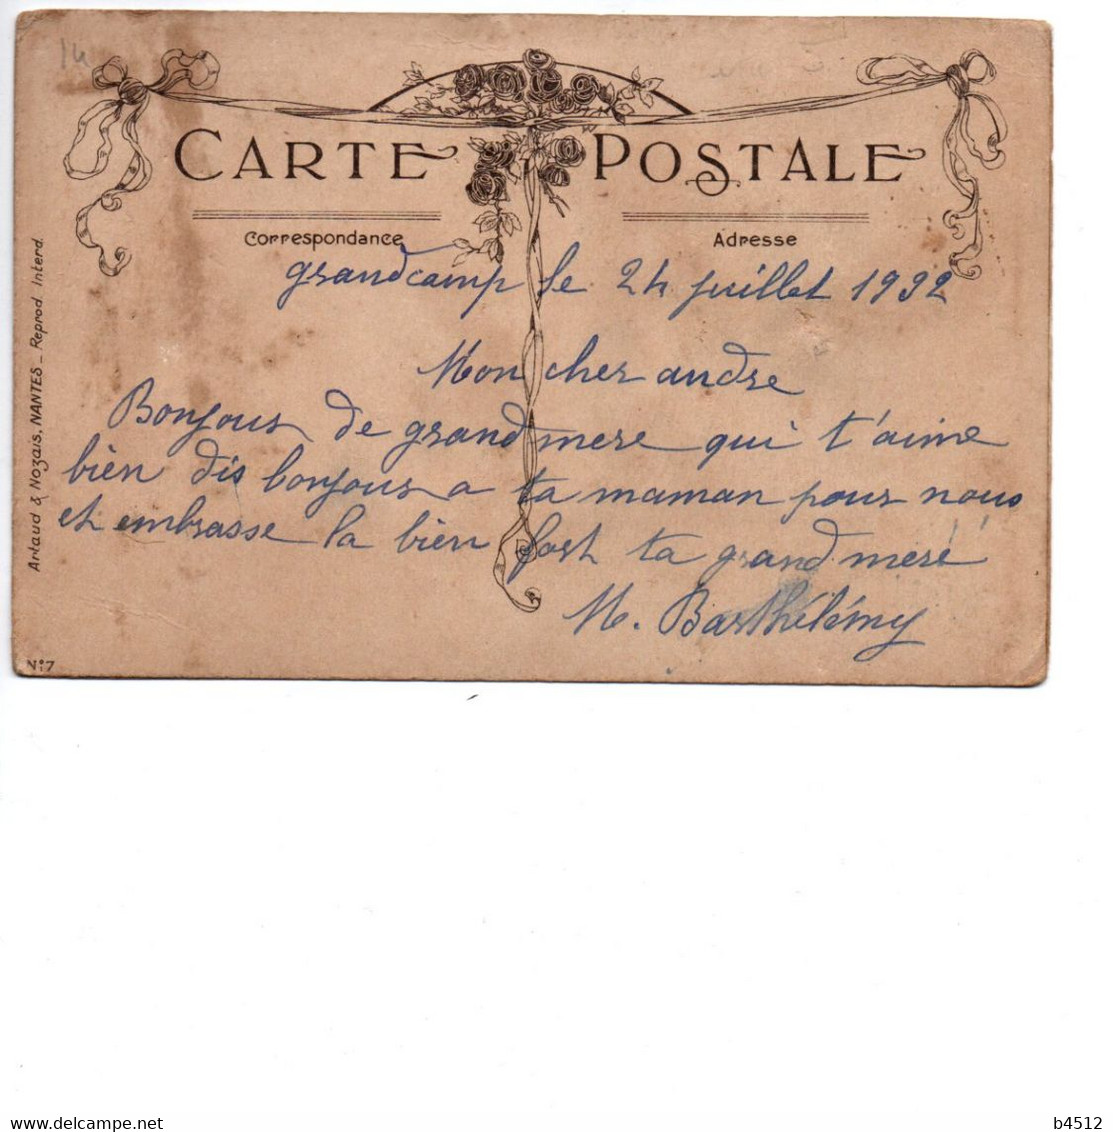 14
CARTE POSTALE
Correspondance
Adresse
grandcamp le 24 juillet 1932
Mon cher andre
Bonjour de grand mere qui t'aime
bien dis bonjour a ta maman pour nous
et embrasse la bien fort ta grand meré
M. Barthélémy
Artaud & Nozais, NANTES - Reprod. Interd.
N° 7
delcampe.net
b4512